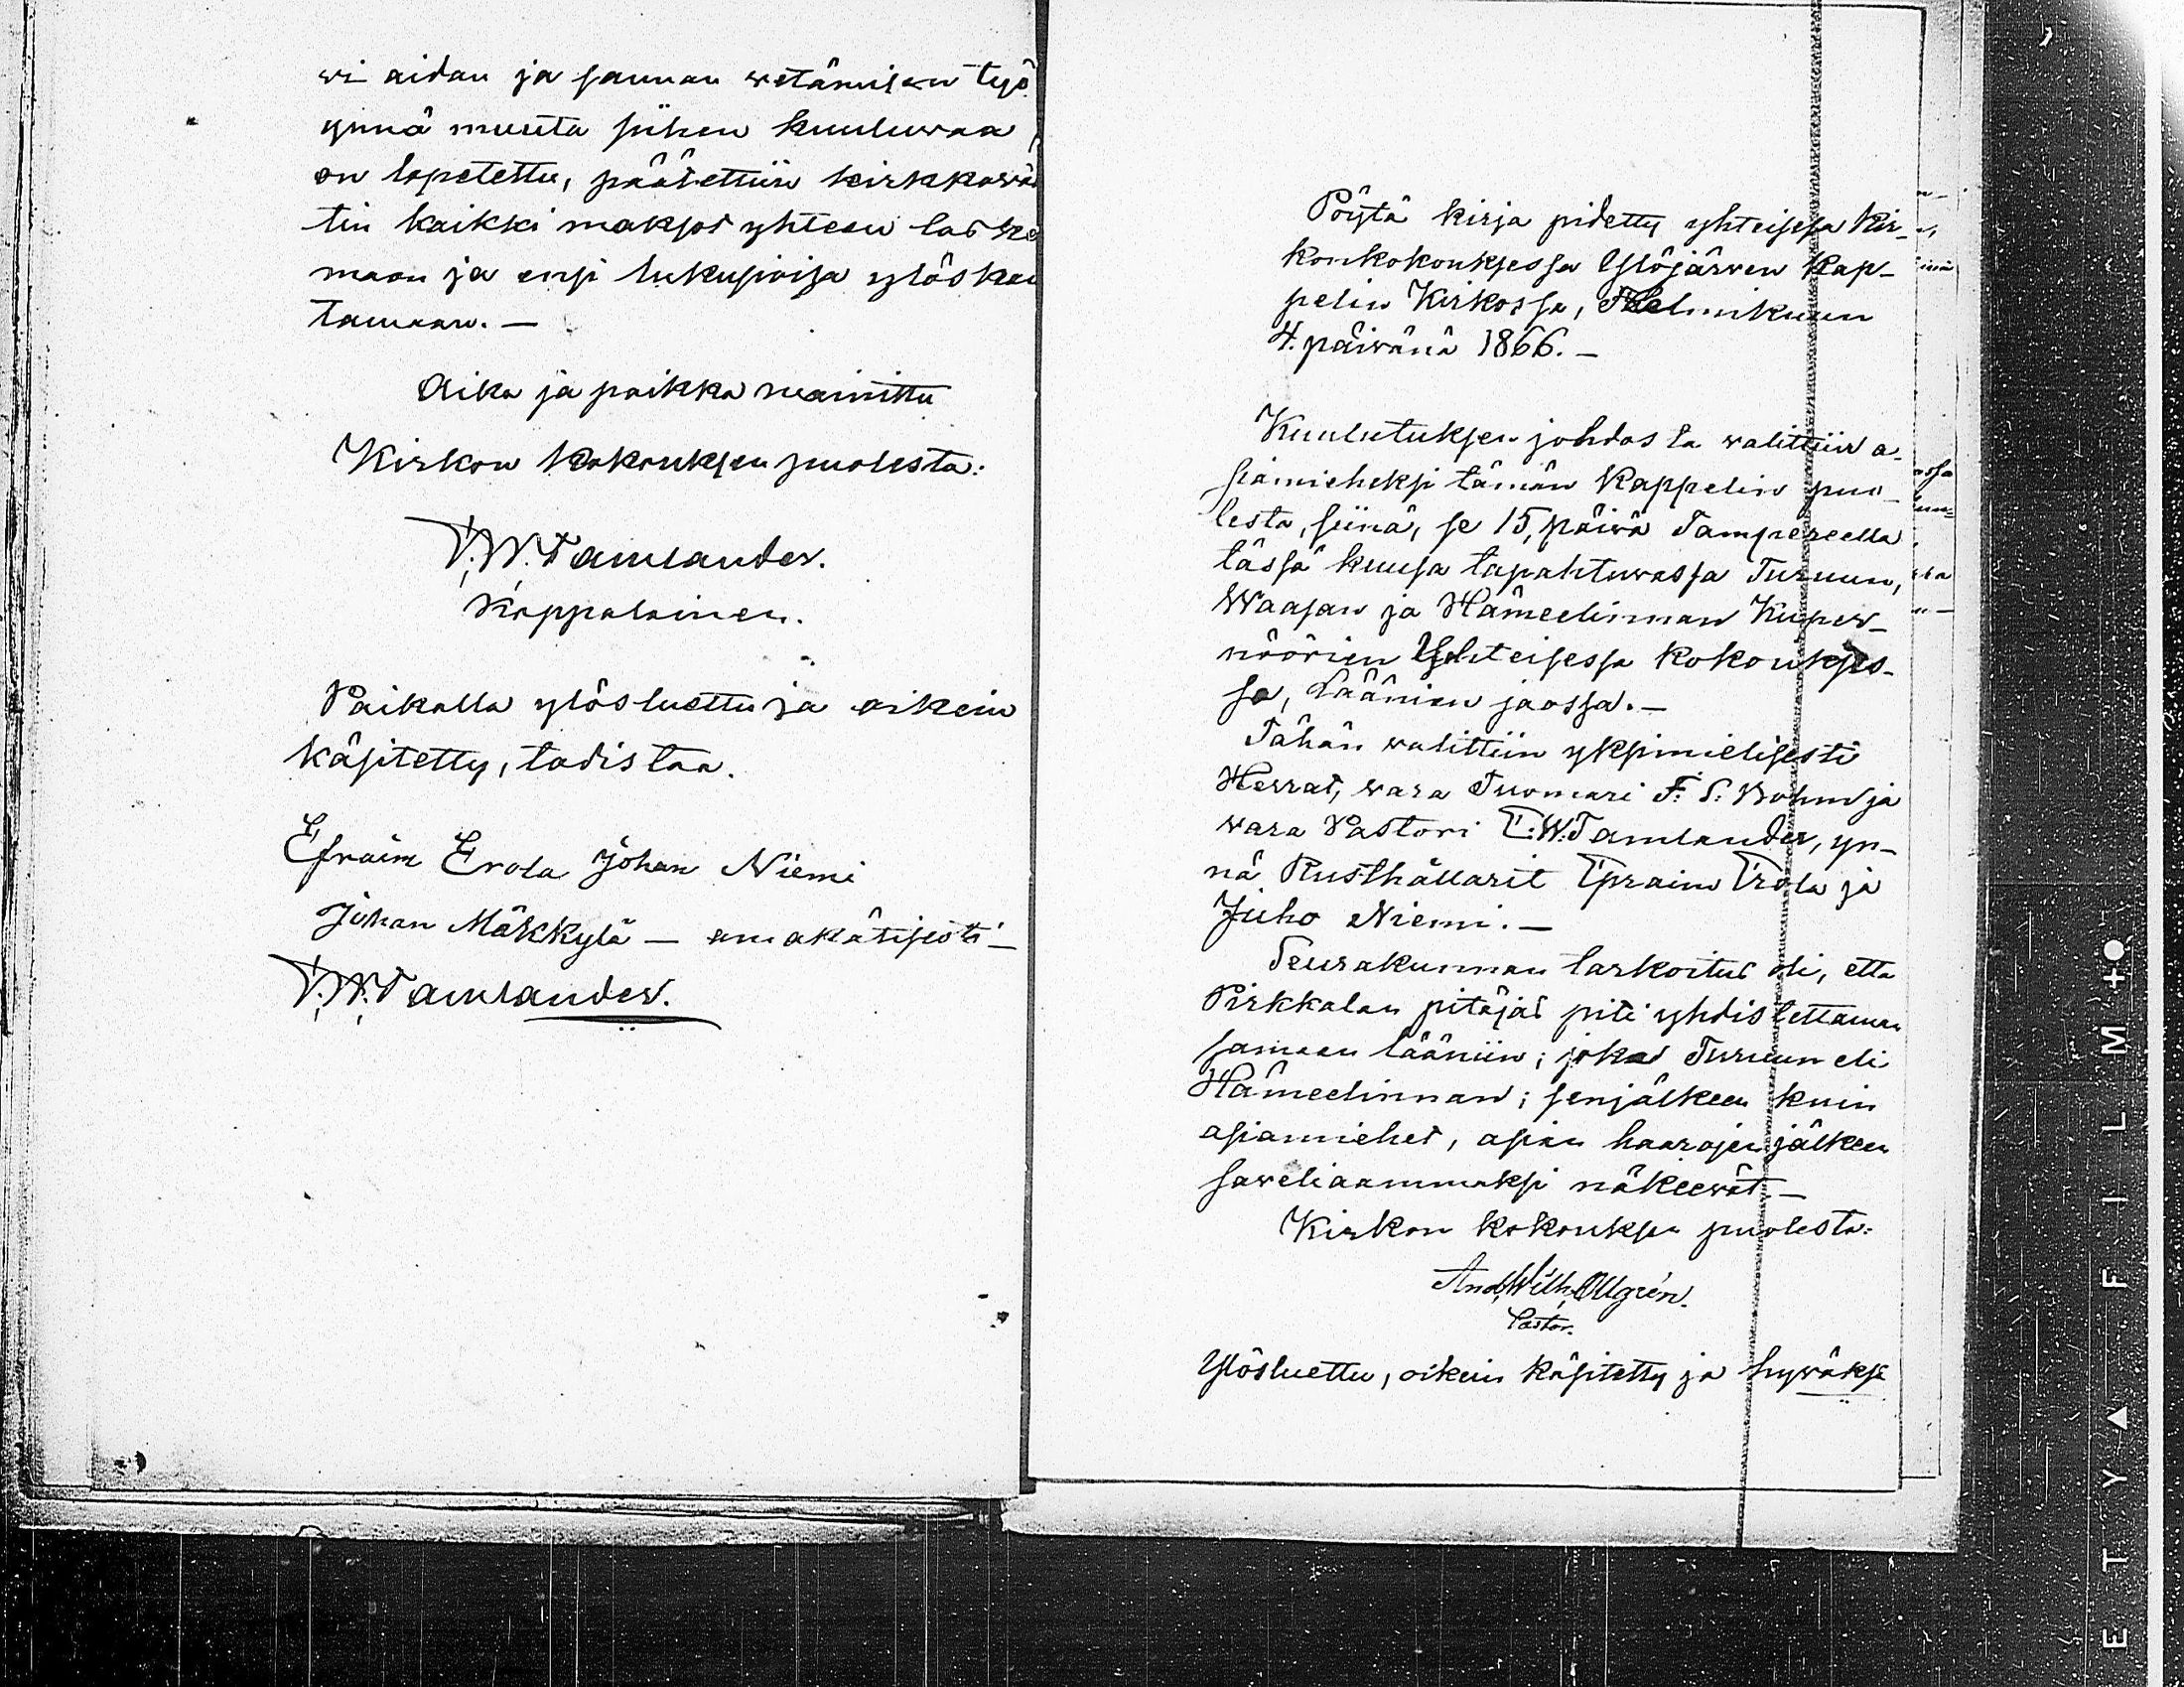 wi aidan ja saunan wetämisen työ
ynnä muuta siihen kuuluwaa
on lopetettu, päätettiin kirkkowär
tin kaikki maksos yhteen laske
maan ja ensi lukusioisa ylöskan
tamaan. —
Aika ja paikka mainittu
Kirkon kokouksen puolesta:
T. W. Tamlander.
Kappalainen.
Paikalla ylösluettu ja oikein
käsitetty, todistaa.
Efraim Erola Johan Niemi
Johan Mäkkylä — omakätisesti —
T. W. Tamlander.
Pöytä kirja pidetty yhteisesä Kir-
konkokouksessa Ylöjärwen Kap-
pelin Kirkossa, Helmikuun
4. päiwänä 1866. —
Kuulutuksen johdosta walittiin a-
siamieheksi tämän Kappelin puo-
lesta, siinä, se 15, päiwä Tampereella
tässä kuusa tapahtuwassa Turuun,
Waasan ja Hämeelinnan Kuper-
nöörien Yhteisessä kokoukses-
sa, Läänien jaossa. —
Tähän walittiin yksimielisesti
Herrat, wara Tuomari F. S. Bohm ja
wara Pastori T. W. Tamlander, yn-
nä Rusthållarit Epraim Erola ja
Juho Niemi. —
Seurakunnan tarkoitus oli, että
Pirkkalan pitäjäs piti yhdistettämän
samaan lääniin; joko Turuun eli
Hämeelinnan; senjälkeen kuin
asiamiehet, asian haarojen jälkeen
soweliaammaksi näkeewät. —
Kirkon kokouksen puolesta:
And. Wilh. Ollgrén.
Pastor.
Ylösluettu, oikein käsitetty ja hywäksi
ETY▲ FILM